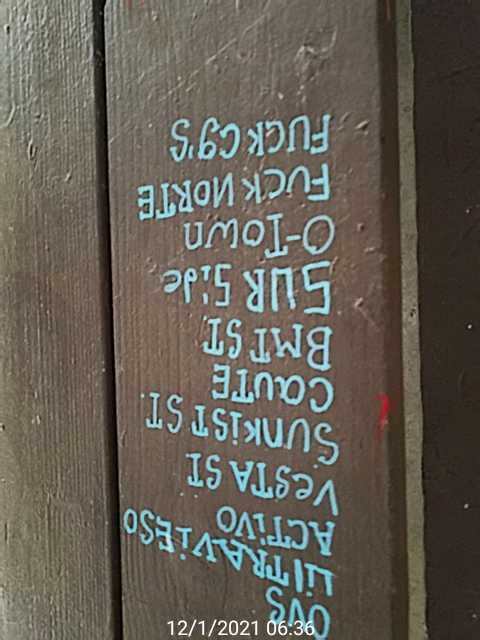 OVS
LilTRAViESO
ACTiVO
VESTA ST.
SUNKiST ST.
CQUTE
BMT ST.
SUR Side
O-TOWN
FUCK NORTE
FUCK Cg'S
12/1/2021 06:36